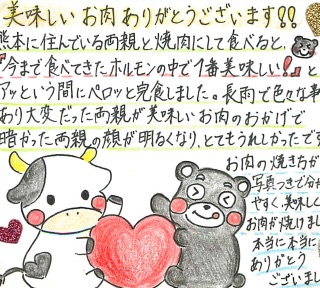 美味しい お肉 ありがとうございます!!
熊本に住んでいる両親と焼肉にして食べると、
『今まで食べてきたホルモンの中で1番美味しい!』と
アッという間にペロッと完食しました。長雨で色々な事
あり大変だった両親が美味しいお肉のおかげで
暗かった両親の顔が明るくなり、とてもうれしかったです
お肉の焼き方が
写真つきで分か
やすく、美味しく
お肉が焼けまし
本当に本当に
ありがとう
ございまし